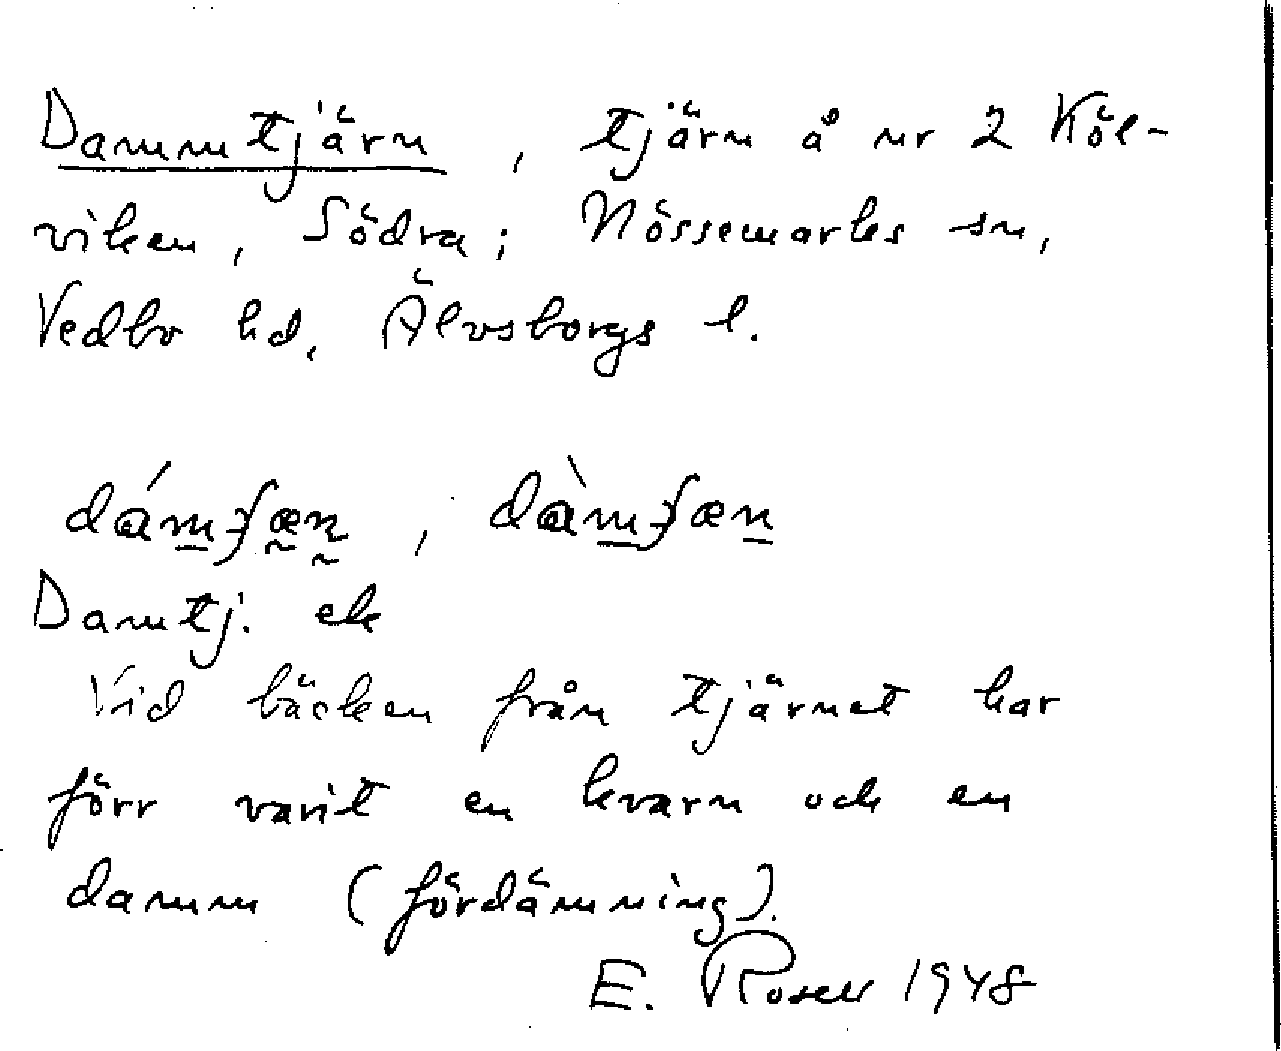 Dammtjärn, tjärn å nr 2 Köl-
viken, Södra; Nössemarks sn,
Vedbo hd, Älvsborgs l.
Damtj. ek
Vid bäcken från tjärnet har
förr varit en kvarn och en
damm (fördämning).
E. Rosell 1948